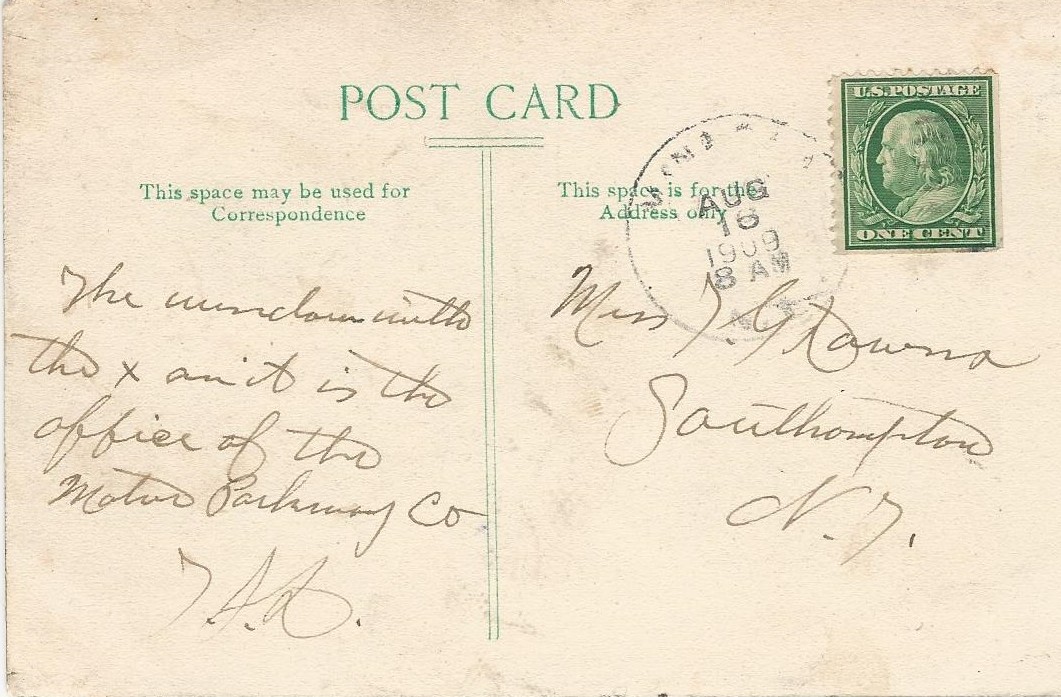 POST CARD
This space may be used for
Correspondence
This space is for the
Address only
U.S. POSTAGE
ONE CENT
AUG
16
1909
8 AM
N Y
The window with
the x on it is the
office of the
Motor Parkway Co
Miss
Southampton
N. Y.